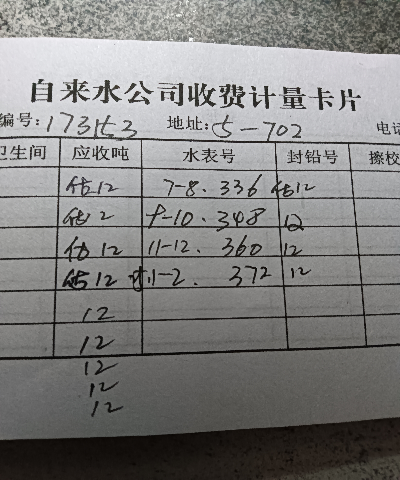 自来水公司收费计量卡片
编号:173153 地址:5-702 电话
卫生间 应收吨 水表号 封铅号 擦校
估12 7-8. 336 估12
估12 9-10. 348 12
估12 11-12. 360 12
估12 1-2. 372 12
12
12
12
12
12